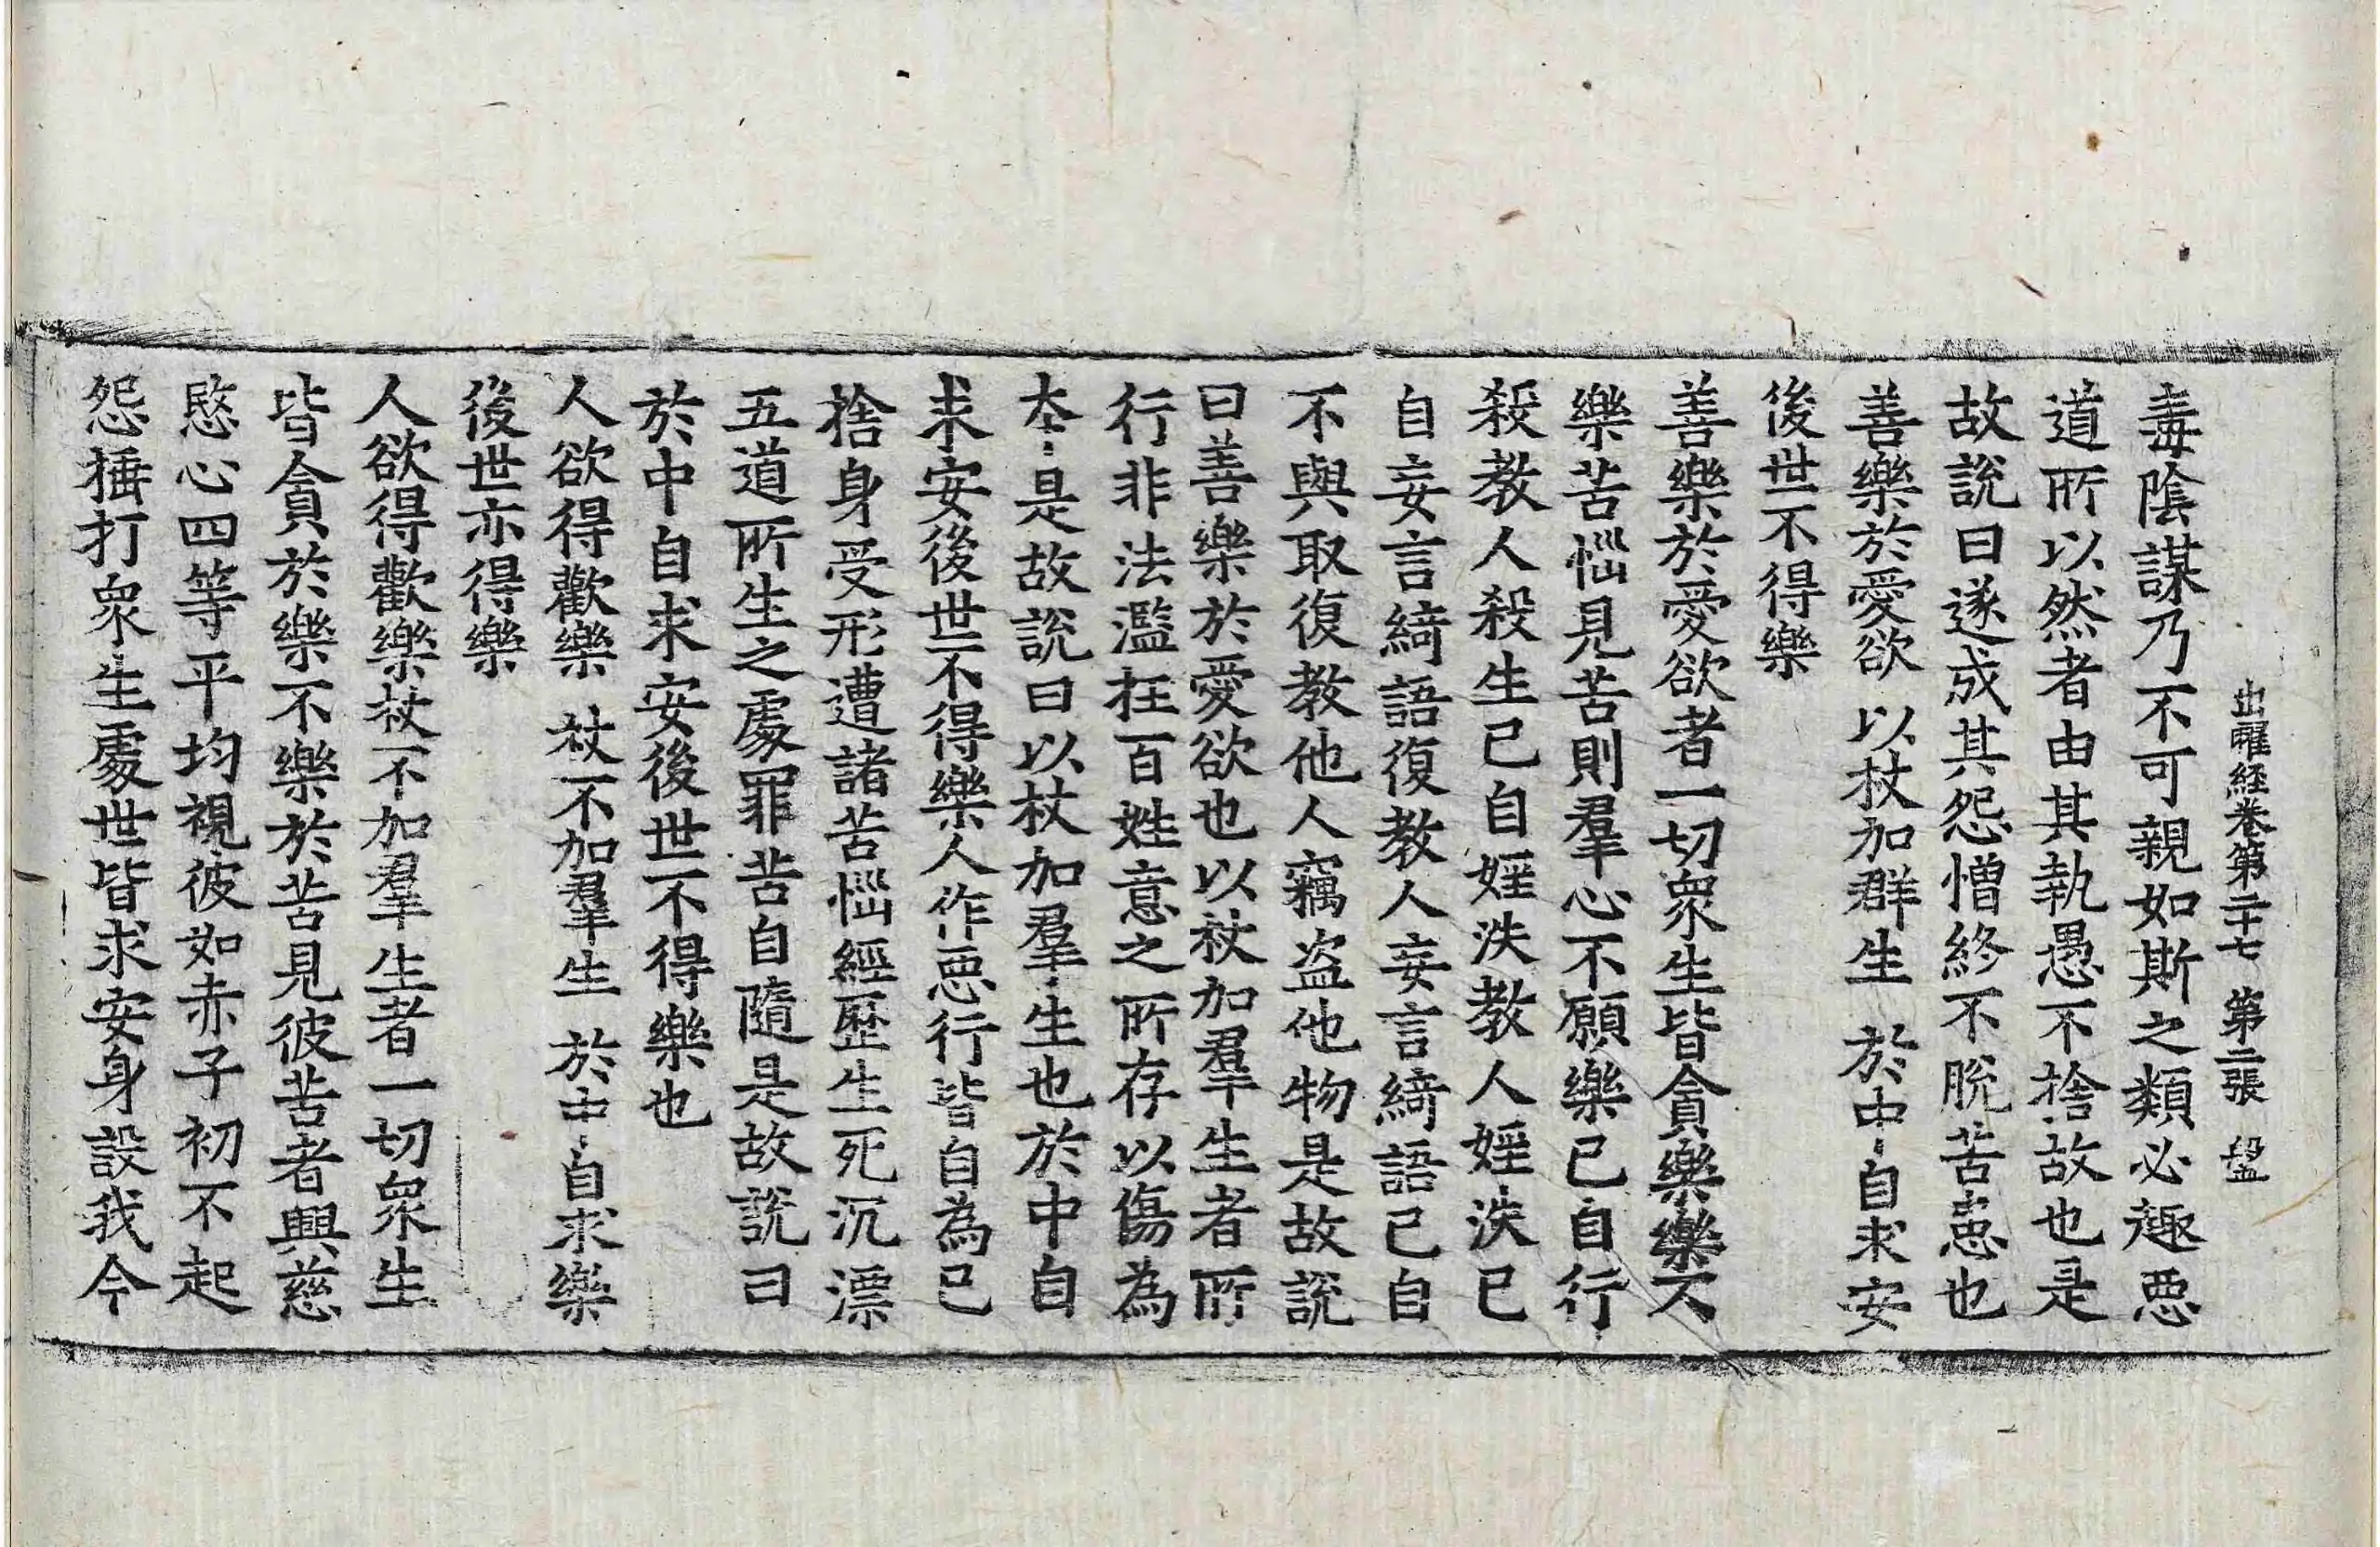 出曜經卷第二十七 第二張 盤
毒陰謀乃不可親如斯之類必趣惡
道所以然者由其執愚不捨故也是
故說曰遂成其怨憎終不脫苦患也
善樂於愛欲 以杖加群生 於中自求安
後世不得樂
善樂於愛欲者一切衆生皆貪樂樂不
樂苦惱見苦則羣心不願樂已自行
殺教人殺生已自婬泆教人婬泆已
自妄言綺語復教人妄言綺語已自
不與取復教他人竊盜他物是故說
曰善樂於愛欲也以杖加羣生者所
行非法濫抂百姓意之所存以傷為
本是故說曰以杖加羣生也於中自
求安後世不得樂人作惡行皆自為已
捨身受形遭諸苦惱經歷生死沉漂
五道所生之處罪苦自隨是故說曰
於中自求安後世不得樂也
人欲得歡樂 杖不加羣生 於中自求樂
後世亦得樂
人欲得歡樂杖不加羣生者一切衆生
皆貪於樂不樂於苦見彼苦者興慈
愍心四等平均視彼如赤子初不起
怨捶打衆生處世皆求安身設我今